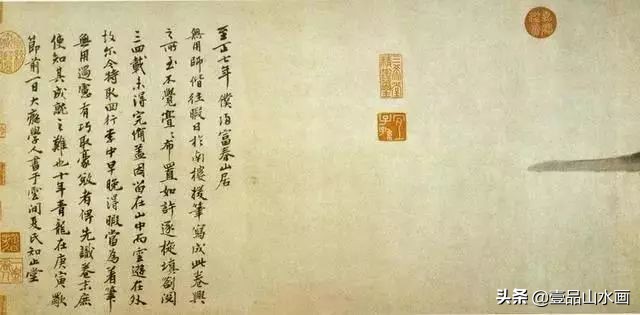 至正七年僕歸富春山居
無用師偕往暇日於南樓援筆寫成此卷興
之所至不覺亹亹布置如許逐旋填劄閱
三四載未得完備蓋因留在山中而雲遊在外
故爾今特取回行李中早晚得暇當為着筆
無用過慮有巧取豪敓者俾先識卷末庶
使知其成就之難也十年青龍在庚寅歜
節前一日大癡學人書于雲間夏氏知止堂
三希堂
精鑑璽
宜
子孫
头条 @壹品山水画